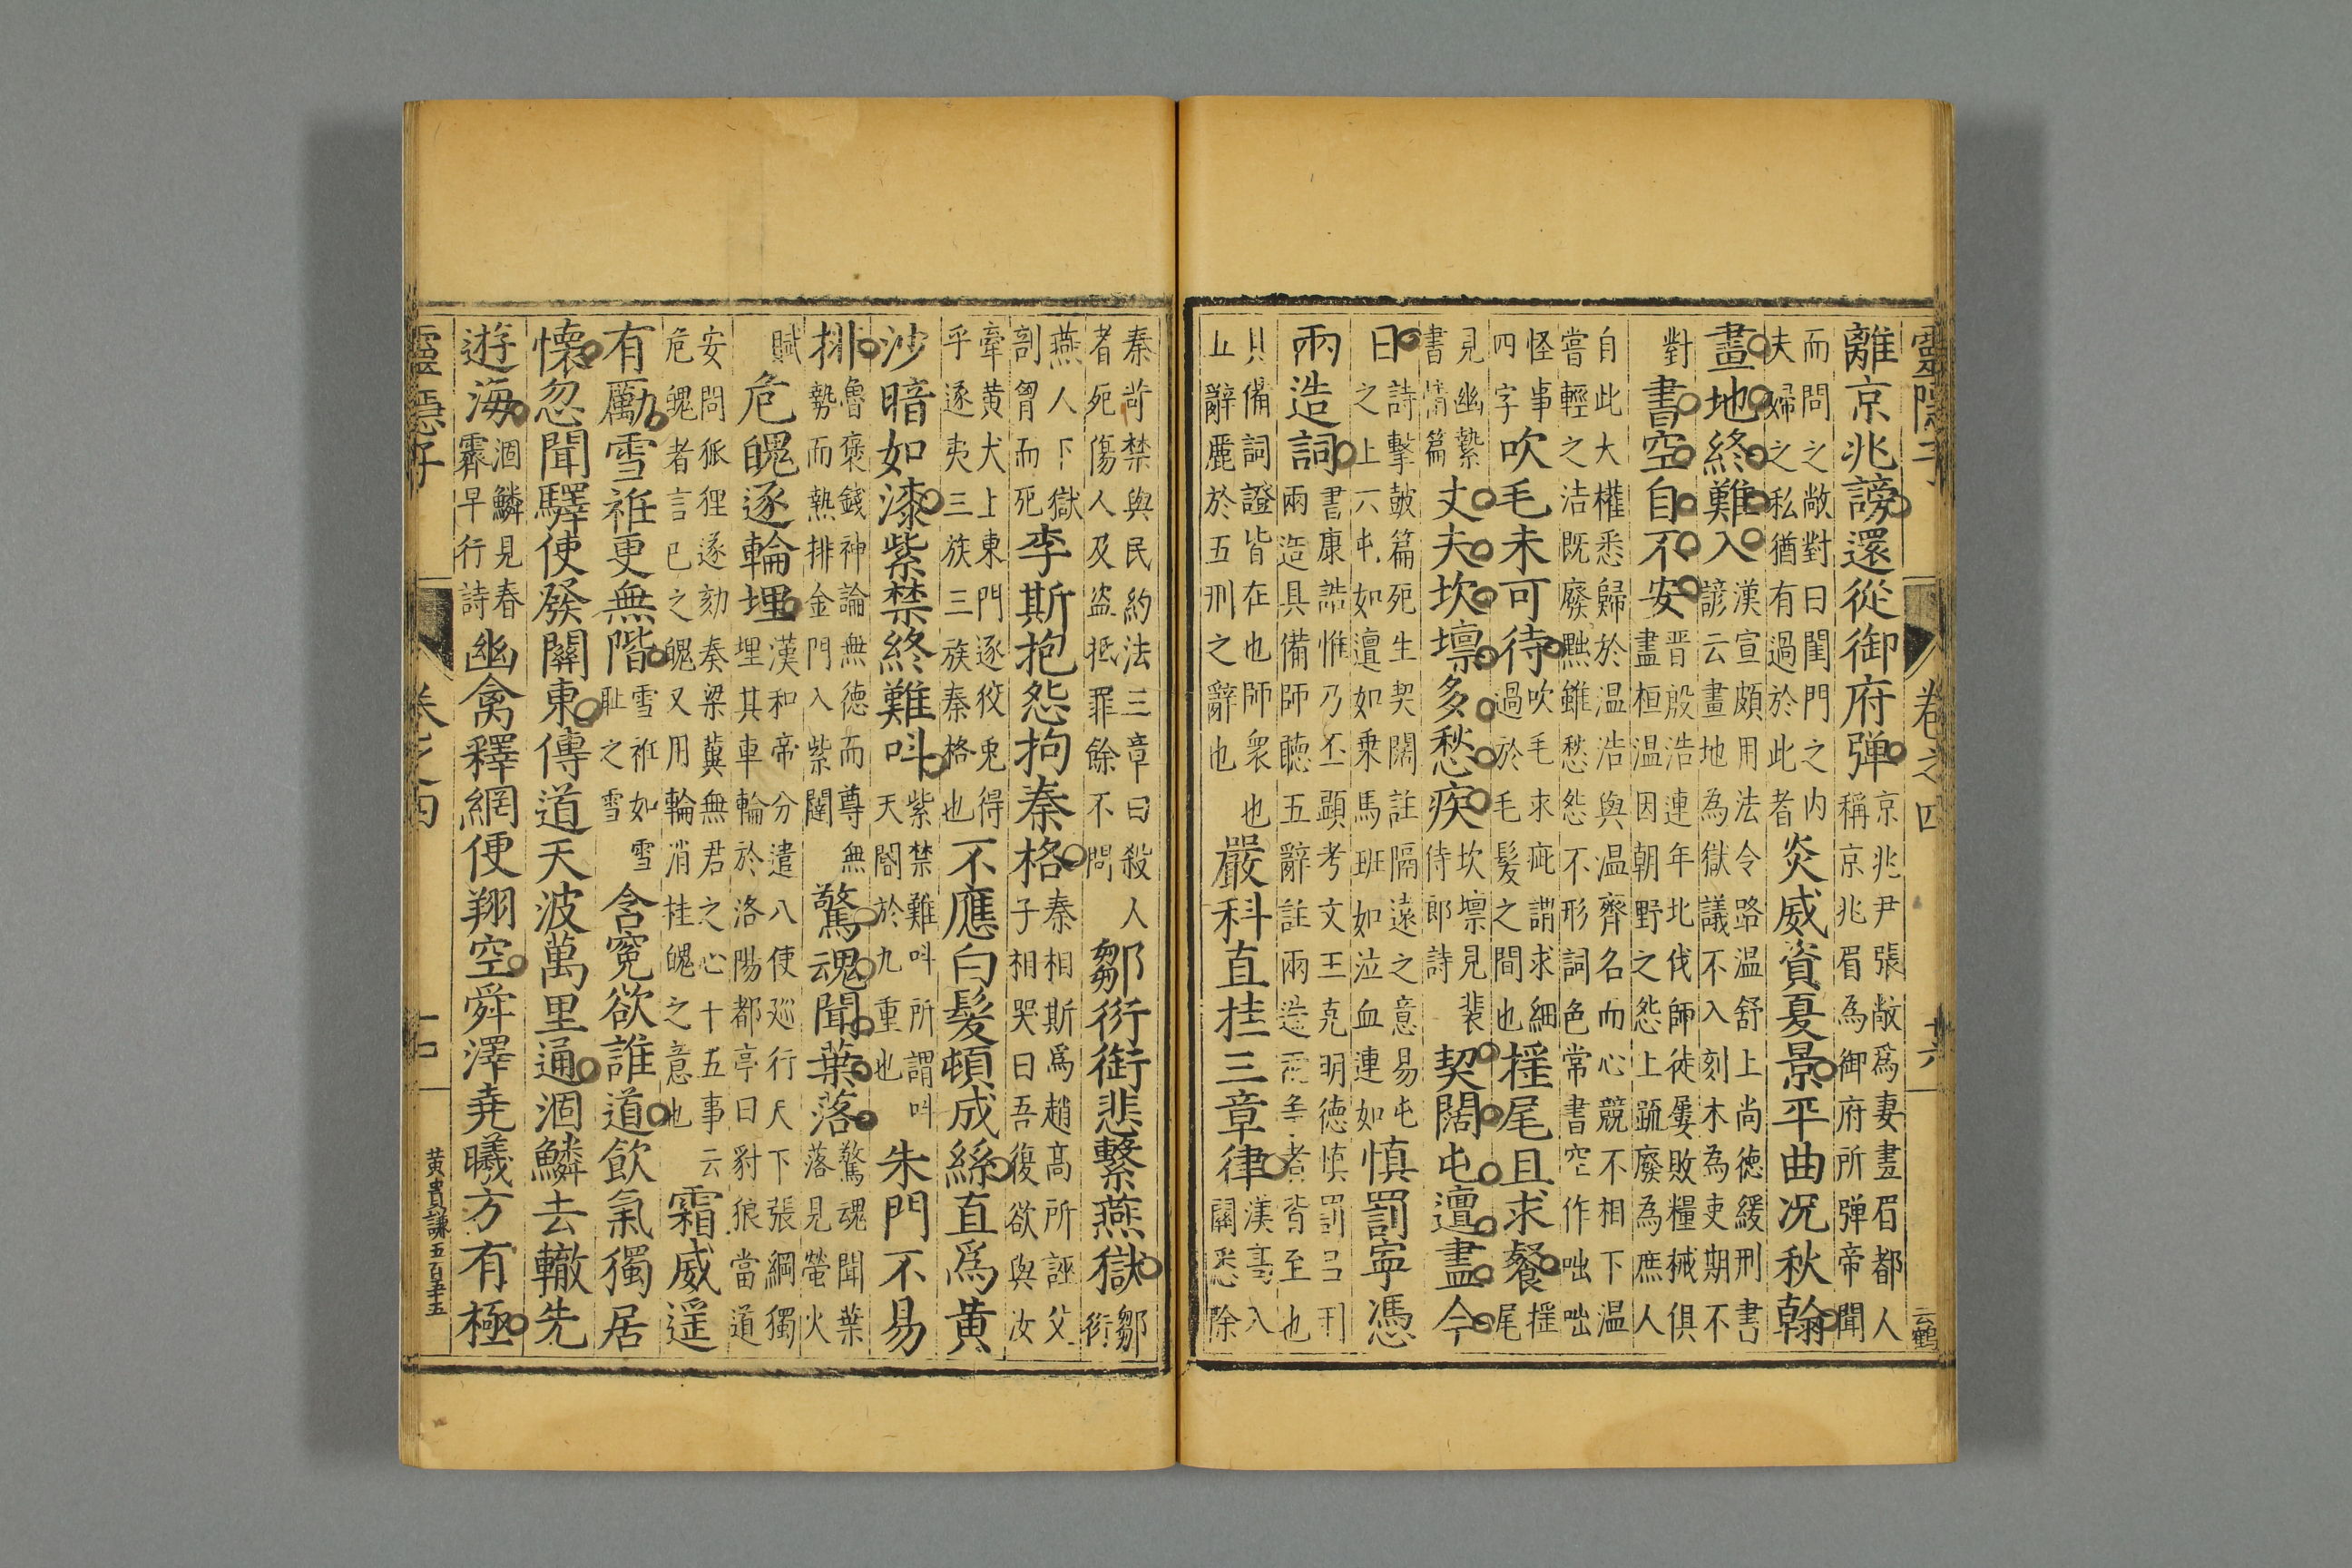 靈隱子 卷之四 十六 云鶴
離京兆謗還從御府彈京兆尹張敞爲妻畫眉都人稱京兆眉為御府所彈帝聞
而問之敞對曰閨門之内夫婦之私猶有過於此者炎威資夏景平曲况秋翰
畫地終難入漢宣頗用法令路温舒上尚德緩刑書諺云畫地為獄議不入刻木為吏期不
對書空自不安晋殷浩連年北伐師徒屢敗糧械俱盡桓温因朝野之怨上疏廢為庶人
自此大權悉歸於温浩與温齊名而心競不相下温嘗輕之浩既廢黜雖愁怨不形詞色常書空作咄咄
怪事四字吹毛未可待吹毛求疵謂求細過於毛髮之間也揺尾且求餐揺尾
見幽縶書情篇丈夫坎壈多愁疾坎壈見裴侍郎詩契闊屯邅盡今
日詩擊鼓篇死生契闊註隔遠之意易屯之上六屯如邅如乘馬班如泣血連如慎罰寧憑
兩造詞書康誥惟乃丕顯考文王克明德慎罰吕刑兩造具備師聽五辭註兩造兩爭者皆至也
具備詞證皆在也師衆也五辭麗於五刑之辭也嚴科直挂三章律漢書入關悉除
秦苛禁與民約法三章曰殺人者死傷人及盗抵罪餘不問鄒衍銜悲繫燕獄鄒衍
燕人下獄剖胷而死李斯抱怨拘秦格秦相斯爲趙高所誣父子相哭曰吾復欲與汝
牽黄犬上東門逐狡兎得乎遂夷三族三族秦格也不應白髮頓成絲直爲黄
沙暗如漆紫禁終難呌紫禁難呌所謂呌天閽於九重也朱門不易
排魯褒錢神論無德而尊無勢而熱排金門入紫闥驚魂聞葉落驚魂聞葉落見螢火
賦危魄逐輪埋漢和帝分遣八使廵行天下張綱獨埋其車輪於洛陽都亭曰豺狼當道
安問狐狸遂劾奏梁冀無君之心十五事云危魄者言已之魄又用輪消桂魄之意也霜威遥
有勵雪袵更無階雪袵如雪耻之雪含寃欲誰道飲氣獨居
懷忽聞驛使發關東傳道天波萬里通涸鱗去轍先
遊海涸鱗見春霽早行詩幽禽釋網便翔空舜澤堯曦方有極
靈隱子 卷之四 黄貴謙五百五十五